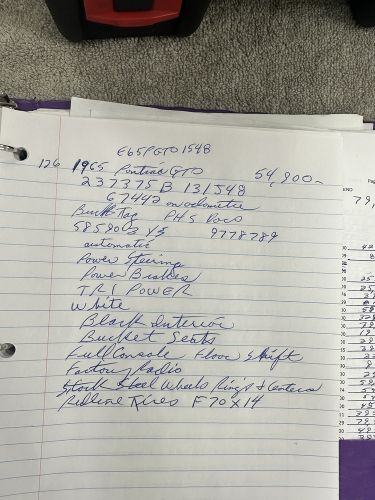 E65PGTO1548
126 1965 Pontiac GTO 54,900-
237375 B 131548
67442 on odometer
Buck Tag PHS Docs
9778789
automatic
Power Steering
Power Brakes
TRI POWER
White
Black Interior
Bucket Seats
Full Console Floor Shift
Factory Radio
Stock Steel Wheels Rings & Centers
Redline Tires F70X14